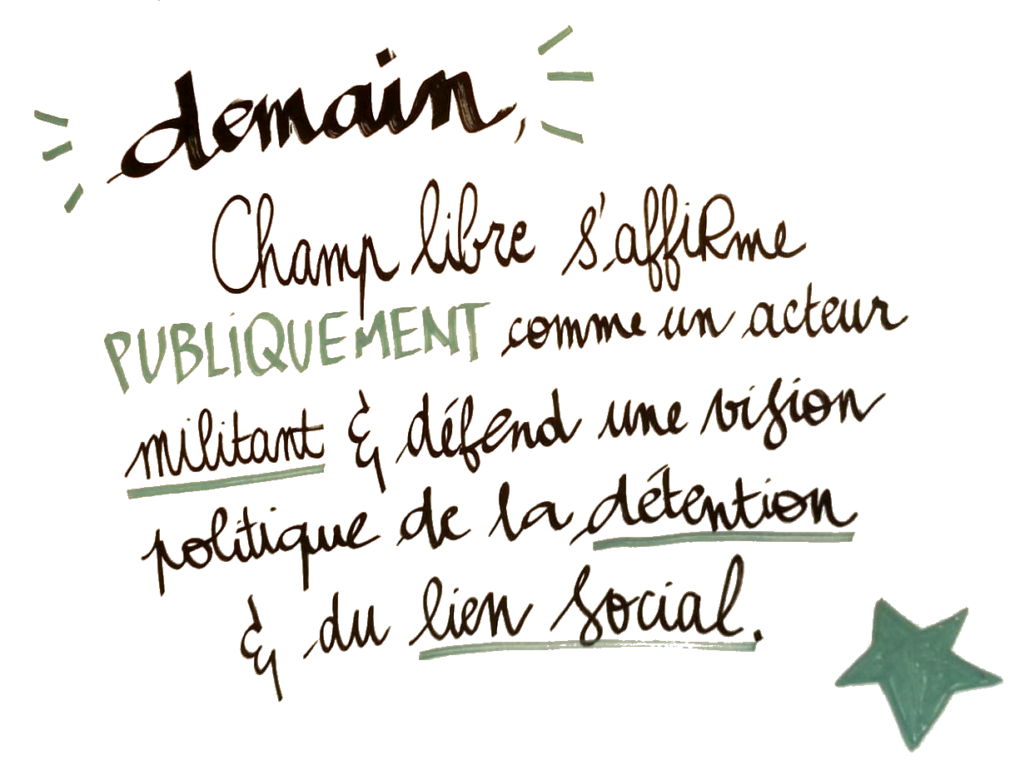 demain,
Champ libre s'affiRme
PUBLiQUEMENT comme un acteur
militant & défend une vision
politique de la détention
& du lien social.